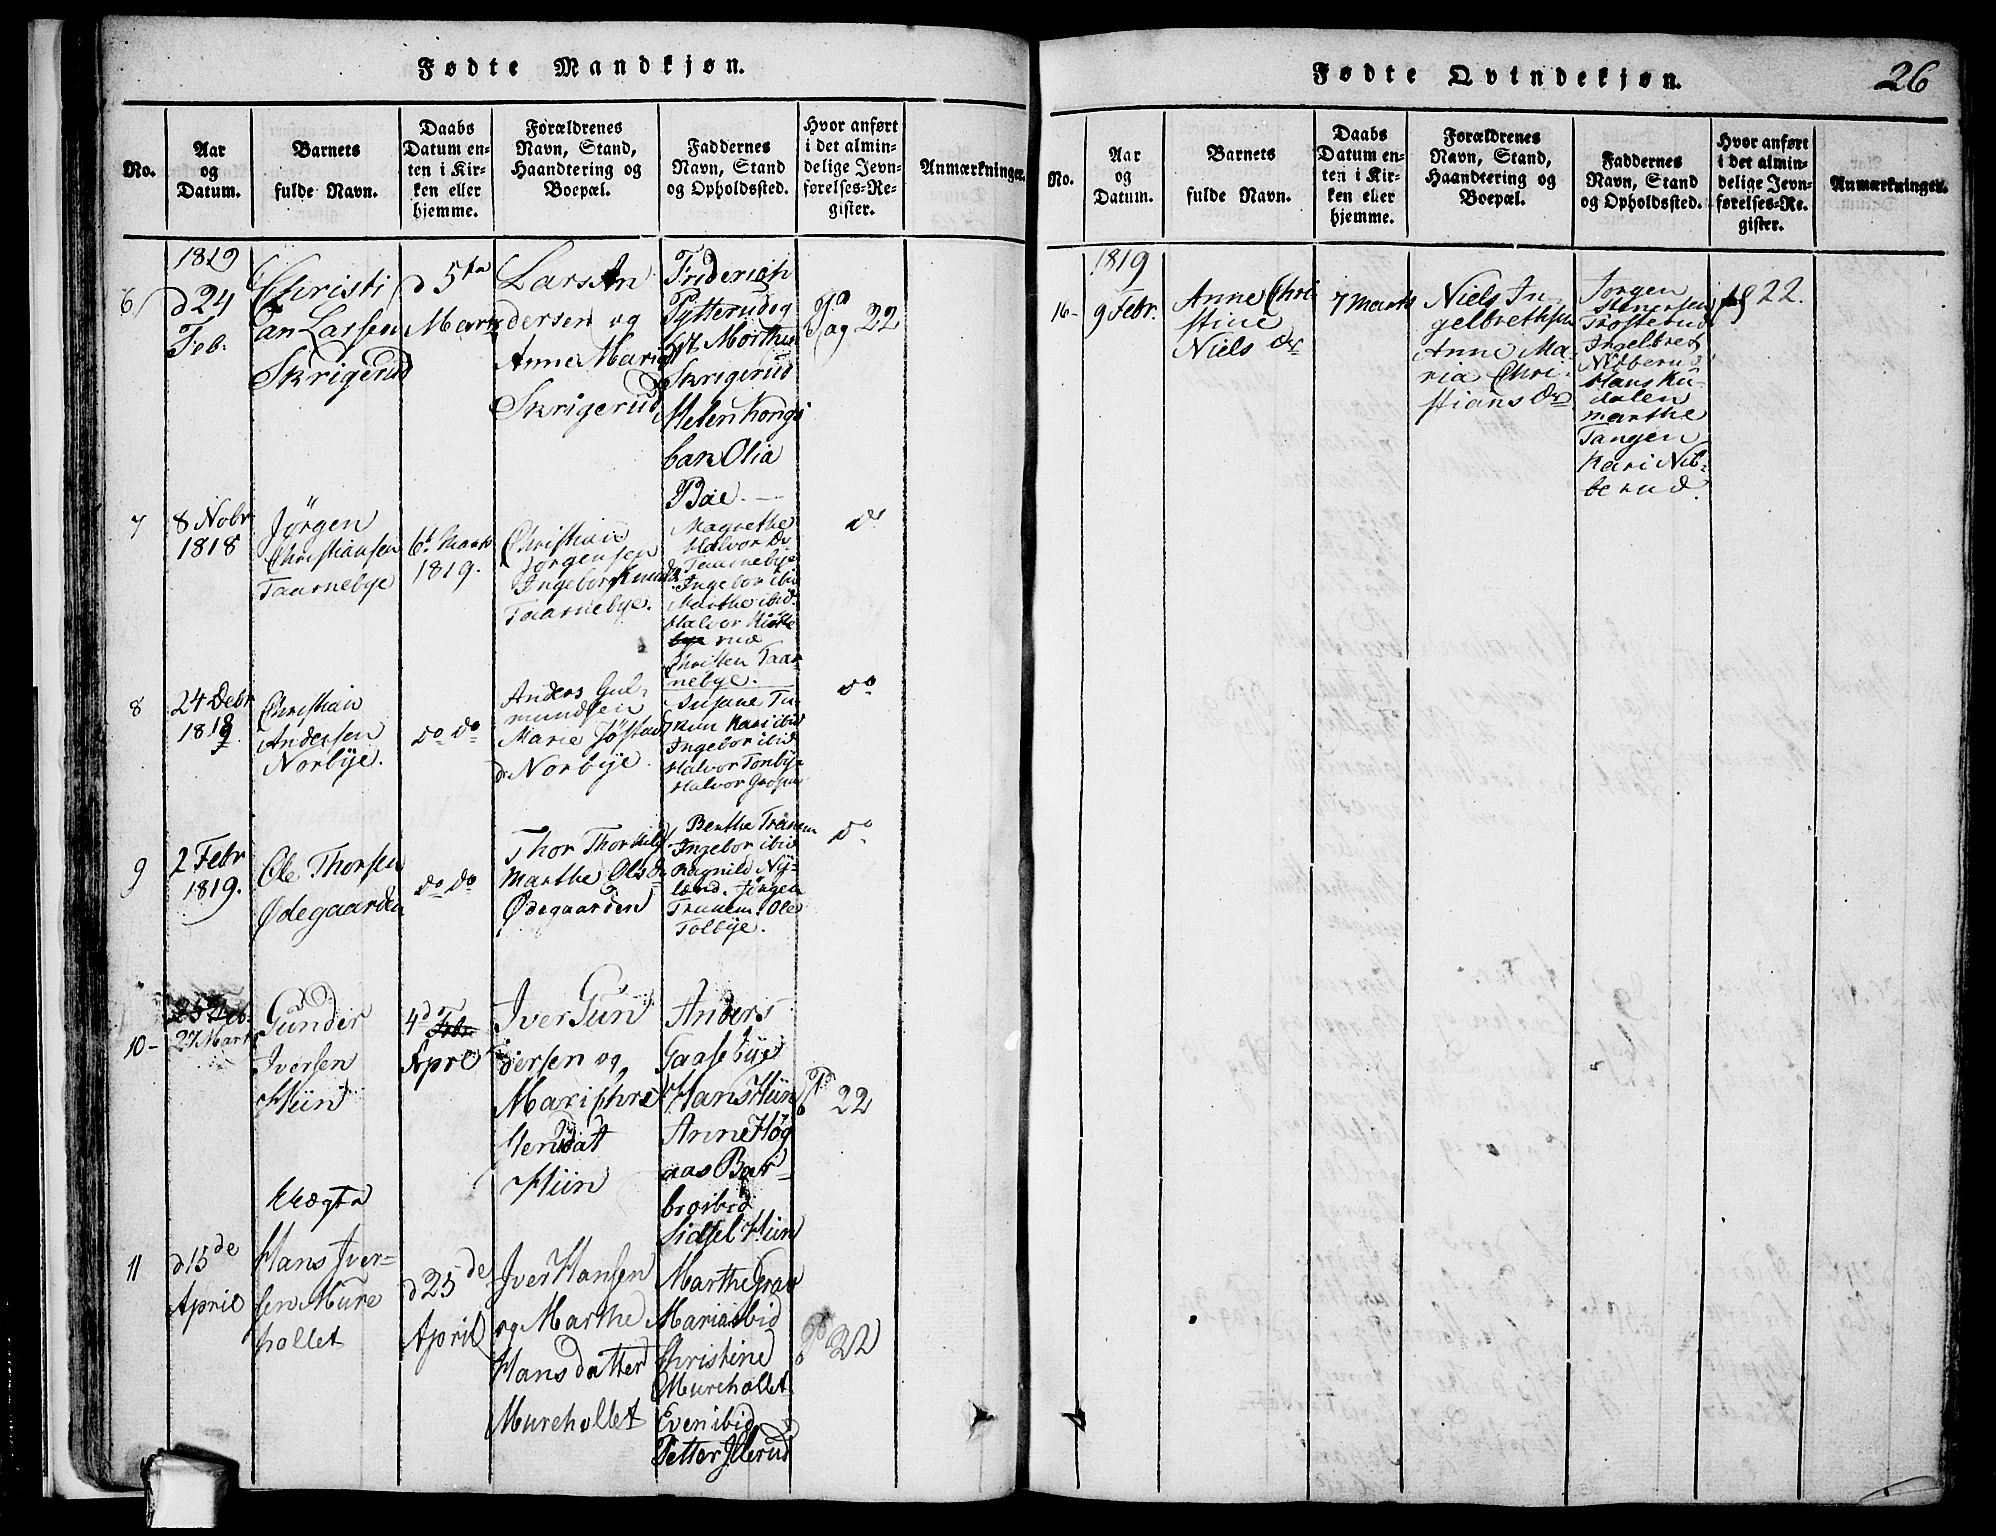 Fødte Mandkjøn.
No.
Aar
og
Datum.
Barnets
fulde Navn.
Daabs
Datum en-
ten i Kir-
ken eller
hjemme.
Forældrenes
Navn, Stand,
Haandtering og
Boepæl.
Faddernes
Navn, Stand
og Opholdssted.
Hvor anført
i det almin-
delige Jevn-
førelses-Re-
gister.
Anmærkninger.
6
1819
d 24
Feb.
Christi
an Larsen
Skrigerud
d 5te
Marts
Lars An
dersen og
Anne Marie
Skrigerud
Friderich
Pytterud og
Morthen
Skrigerud
Helen Kongs
bak Olia
Bae.
Pag 22
7
8 Nobr
1818
Jørgen
Christiansen
Taarnebye
6te Marts
1819.
Christian
Jørgensen
Ingebor Knuds
Taarnebye.
Magrethe
Halvor Dr
Taarnebye
Ingebor ibid
Marthe ibid.
Halvor Kirke
bye rud
Christen Taar-
nebye.
do
8
24 Debr
1818
Christian
Andersen
Norbye.
do do
Anders Gul-
mundsen
Marie Jostad
Norbye.
Susane
Kari ibid
Ingebor ibid
Halvor Tonbye
Halvor
do
9
2 Febr
1819.
Ole Thorsen
Ødegaarden
do do
Thor Thorkels
Marthe Olsdr
Ødegaarden
Berthe Tranem
Ingebor ibid
Ragnild Ny-
lænd. Jørgen
Tranem. Ole
Tolbye.
do
10-
25 Feb.
27 Marts
Gunder
Iversen
Hiin
4d Febr
April
Iver Gun
dersen og
Mari Chri
stensdat
Hiin
Anders
Gaasebye
Hans Hiin
Anne Høg
aas Bar-
bro ibid
Sidsel Hiin
P 22
Uægte
11
d 15de
April
Hans Iver-
sen Mure
hollet
d 25de
April
Iver Hansen
og Marthe
Hans datter
Murehollet
Marthe Grav
Maria ibid
Christine
Murehollet
Even ibid
Petter Illerud
P 22
Fødte Qvindekjøn.
26
No.
Aar
og
Datum.
Barnets
fulde Navn.
Daabs
Datum en-
ten i Kir-
ken eller
hjemme.
Forældrenes
Navn, Stand,
Haandtering og
Boepæl.
Faddernes
Navn, Stand
og Opholdssted.
Hvor anført
i det almin-
delige Jevn-
førelses-Re-
gister.
Anmærkninger.
16-
1819
9 Febr.
Anne Chri
stine
Niels Dr
7 Marts
Niels In-
gelbrethsen
Anne Ma-
ria Chri-
stians Dr
Jørgen
Stenersen
Trosterud
Ingelbret
Nibberud
Hans Ku-
dalen
Marthe
Tangen
Kari Nib-
berud.
pag 22.